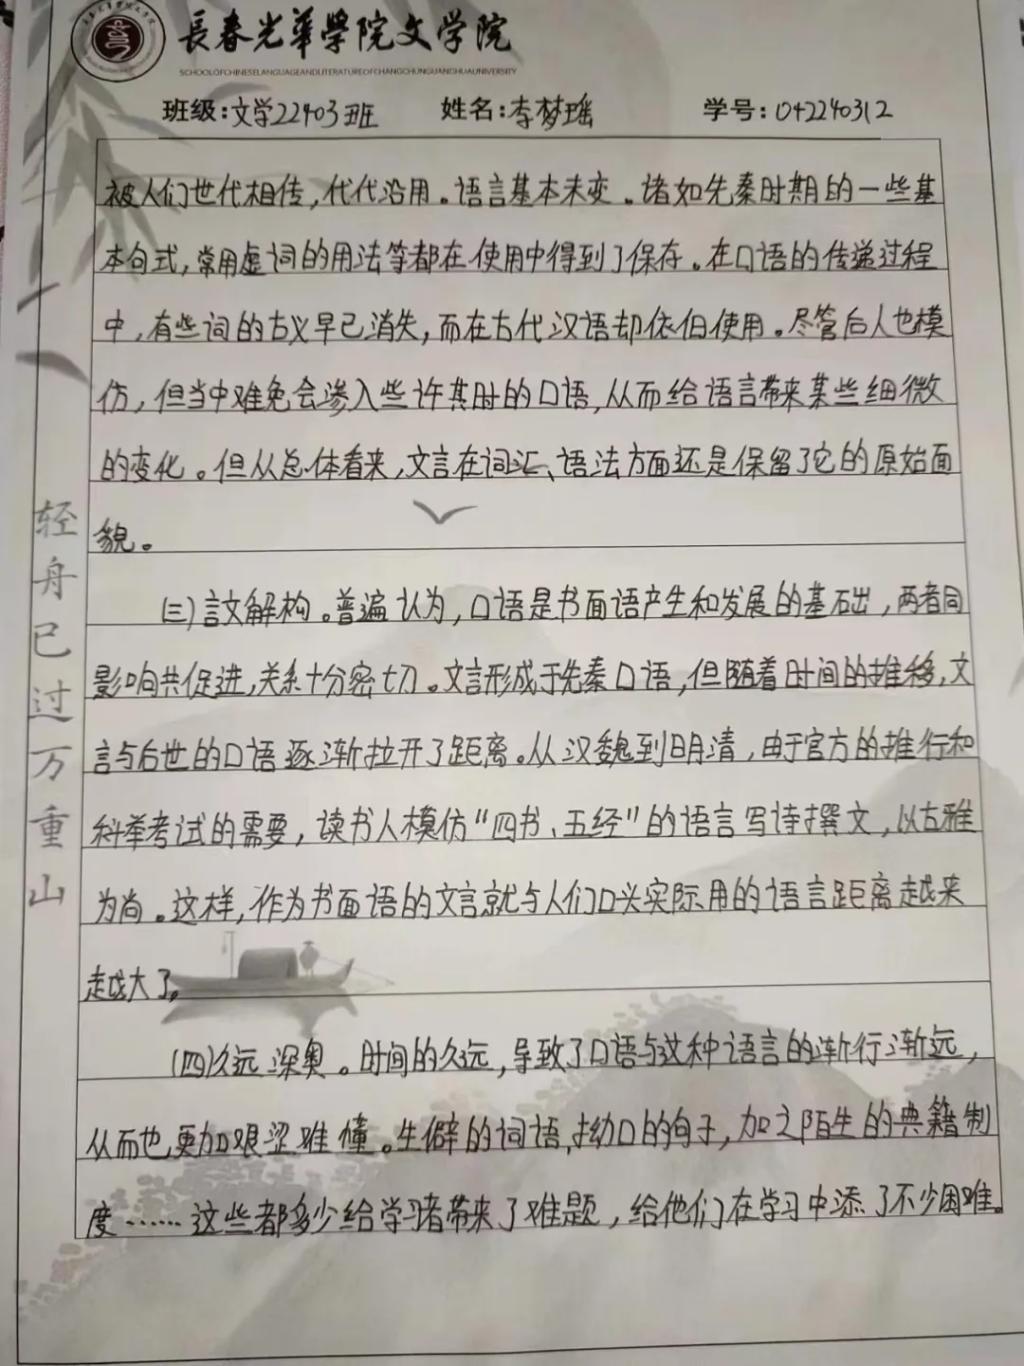 長春光華學院文学院
SCHOOLOFCHINESELANGUAGEANDLITERATUREOFCHANGCHUNGUANGHUAUNIVERSITY
班级:文学22403班 姓名:李梦瑶 学号:042240312
被人们世代相传，代代沿用。语言基本未变。诸如先秦时期的一些基
本句式，常用虚词的用法等都在使用中得到了保存。在口语的传递过程
中，有些词的古义早已消失，而在古代汉语却依旧使用。尽管后人也模
仿，但当中难免会渗入些许其时的口语，从而给语言带来某些细微
的变化。但从总体看来，文言在词汇、语法方面还是保留了它的原始面
貌。
(三)言文解构。普遍认为，口语是书面语产生和发展的基础，两者同
影响共促进，关系十分密切。文言形成于先秦口语，但随着时间的推移，文
言与后世的口语逐渐拉开了距离。从汉魏到明清，由于官方的推行和
科举考试的需要，读书人模仿“四书、五经”的语言写诗撰文，以古雅
为尚。这样，作为书面语的文言就与人们口头实际用的语言距离越来
越大了。
(四)久远深奥。时间的久远，导致了口语与这种语言的渐行渐远，
从而也更加艰涩难懂。生僻的词语，拗口的句子，加之陌生的典籍制
度……这些都多少给学习者带来了难题，给他们在学习中添了不少困难。
轻舟已过万重山